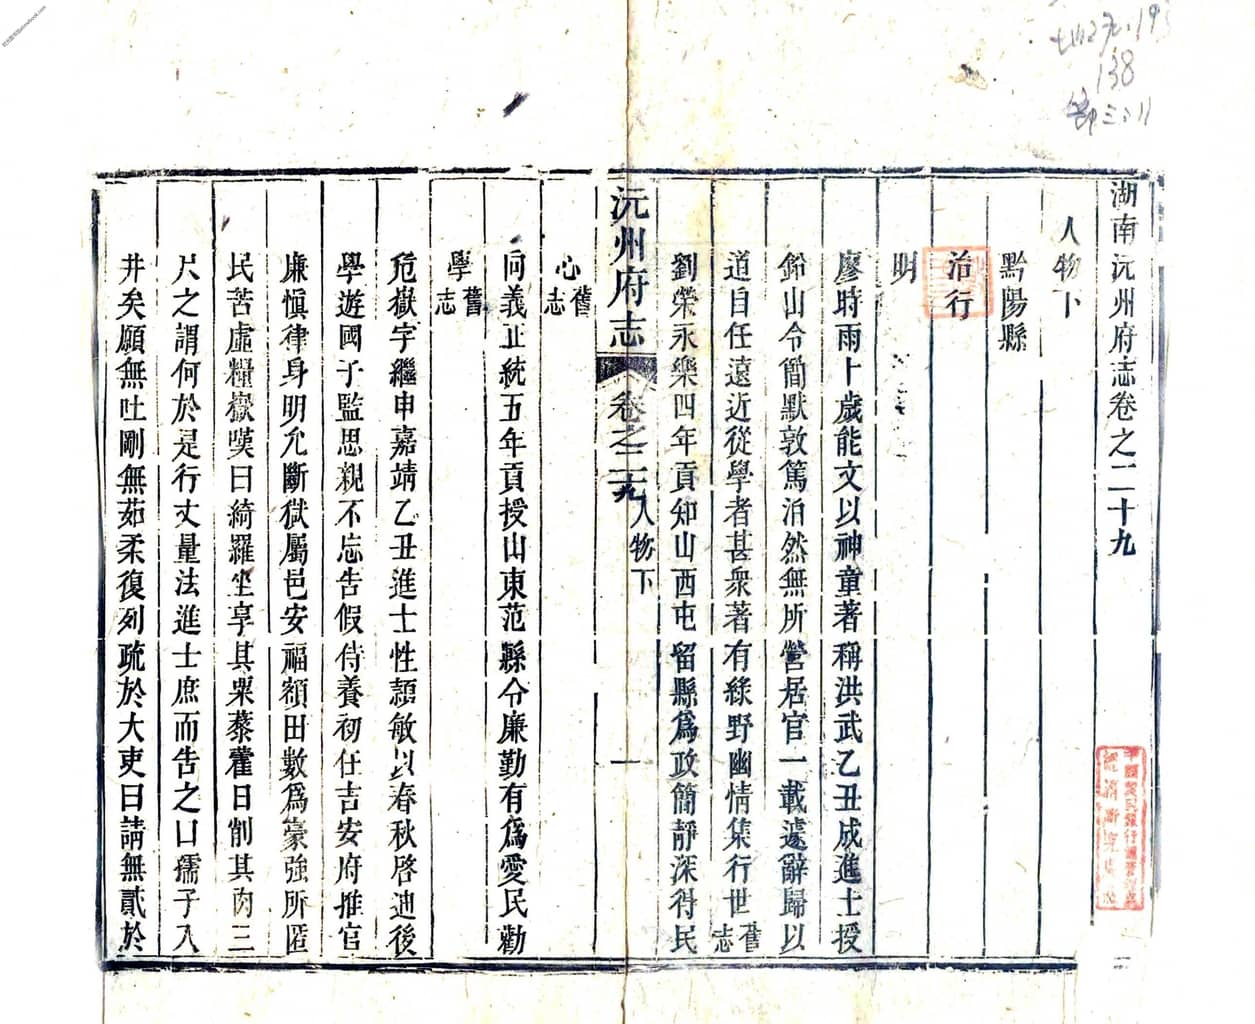 湖南沅州府志卷之二十九
人物下
黔陽縣
治行
明
廖時雨十歲能文以神童著稱洪武乙丑成進士授
鉛山令簡默敦篤泊然無所營居官一載遽辭歸以
道自任遠近從學者甚衆著有綠野幽情集行世舊志
劉榮永樂四年貢知山西屯留縣爲政簡靜深得民
沅州府志 卷之二十九 人物下 一
心舊志
向義正統五年貢授山東范縣令廉勤有爲愛民勸
學舊志
危嶽字繼申嘉靖乙丑進士性頴敏以春秋啓迪後
學遊國子監思親不忘告假侍養初任吉安府推官
廉慎律身明允斷獄屬邑安福額田數爲豪強所匿
民苦虛糧嶽嘆曰綺羅坐享其粟藜藿日削其肉三
尺之謂何於是行丈量法進士庶而告之曰孺子入
井矣願無吐剛無茹柔復列疏於大吏曰請無貳於
138